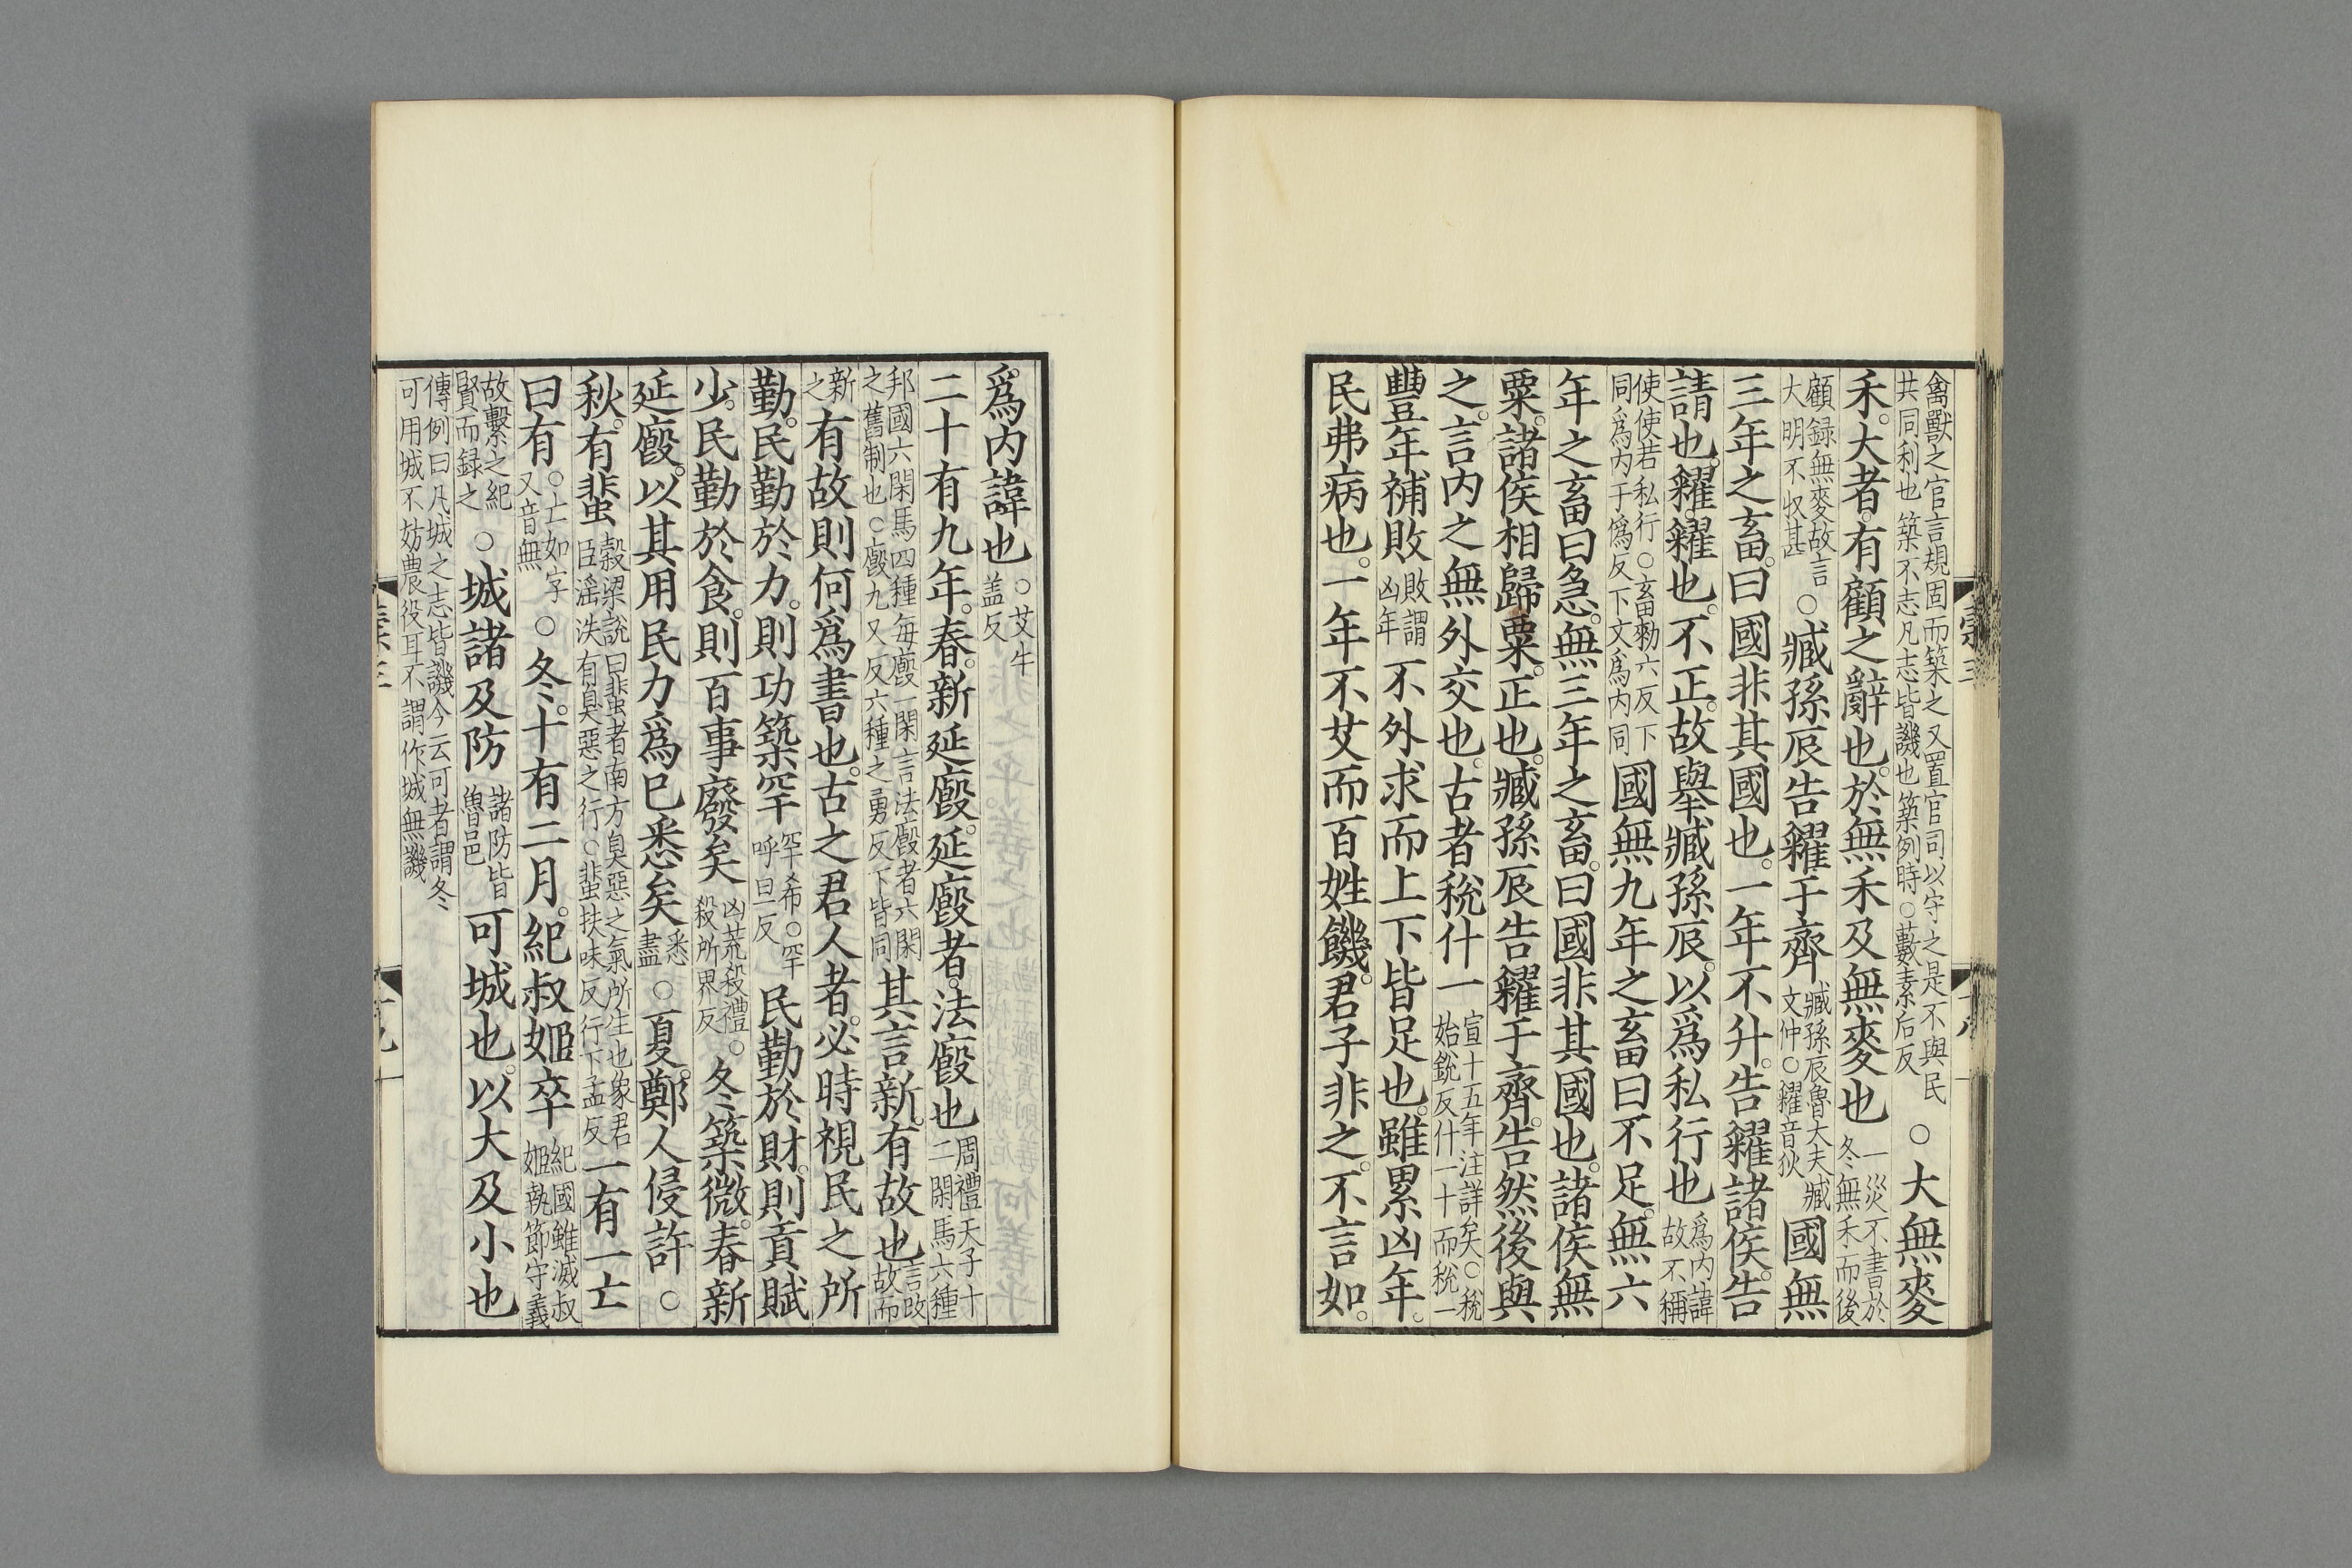 禽獸之官言規固而築之又置官司以守之是不與民
共同利也築不志凡志皆譏也築例時○藪素后反
○大無麥
禾大者有顧之辭也於無禾及無麥也
一災不書於
冬無禾而後
顧録無麥故言
大明不收甚
○臧孫辰告糴于齊
臧孫辰魯大夫臧
文仲○糴音狄
國無
三年之畜曰國非其國也一年不升告糴諸侯告
請也糴糴也不正故舉臧孫辰以爲私行也
爲内諱
故不稱
使使若私行○畜勑六反下
同爲内于僞反下文爲内同
國無九年之畜曰不足無六
年之畜曰急無三年之畜曰國非其國也諸侯無
粟諸侯相歸粟正也臧孫辰告糴于齊告然後與
之言内之無外交也古者稅什一
宣十五年注詳矣○稅
始銳反什一十而稅一
豐年補敗
敗謂
凶年
不外求而上下皆足也雖累凶年
民弗病也一年不艾而百姓饑君子非之不言如
爲内諱也
○艾牛
蓋反
二十有九年春新延廏延廏者法廏也
周禮天子十
二閑馬六種
邦國六閑馬四種每廏一閑言法廏者六閑
之舊制也○廏九又反六種之勇反下皆同
其言新有故也
言改
故而
新
之
有故則何爲書也古之君人者必時視民之所
勤民勤於力則功築罕
罕希○罕
呼旦反
民勤於財則貢賦
少民勤於食則百事廢矣
凶荒殺禮○
殺所界反
冬築微春新
延廏以其用民力爲已悉矣
悉
盡
○夏鄭人侵許○
秋有蜚
穀梁說曰蜚者南方臭惡之氣所生也象君
臣淫泆有臭惡之行○蜚扶味反行下孟反
一有一亡
曰有
○亡如字
又音無
○冬十有二月紀叔姬卒
紀國雖滅叔
姬執節守義
故繫之紀
賢而録之
○城諸及防
諸防皆
魯邑
可城也以大及小也
傳例曰凡城之志皆譏今云可者謂冬
可用城不妨農役耳不謂作城無譏